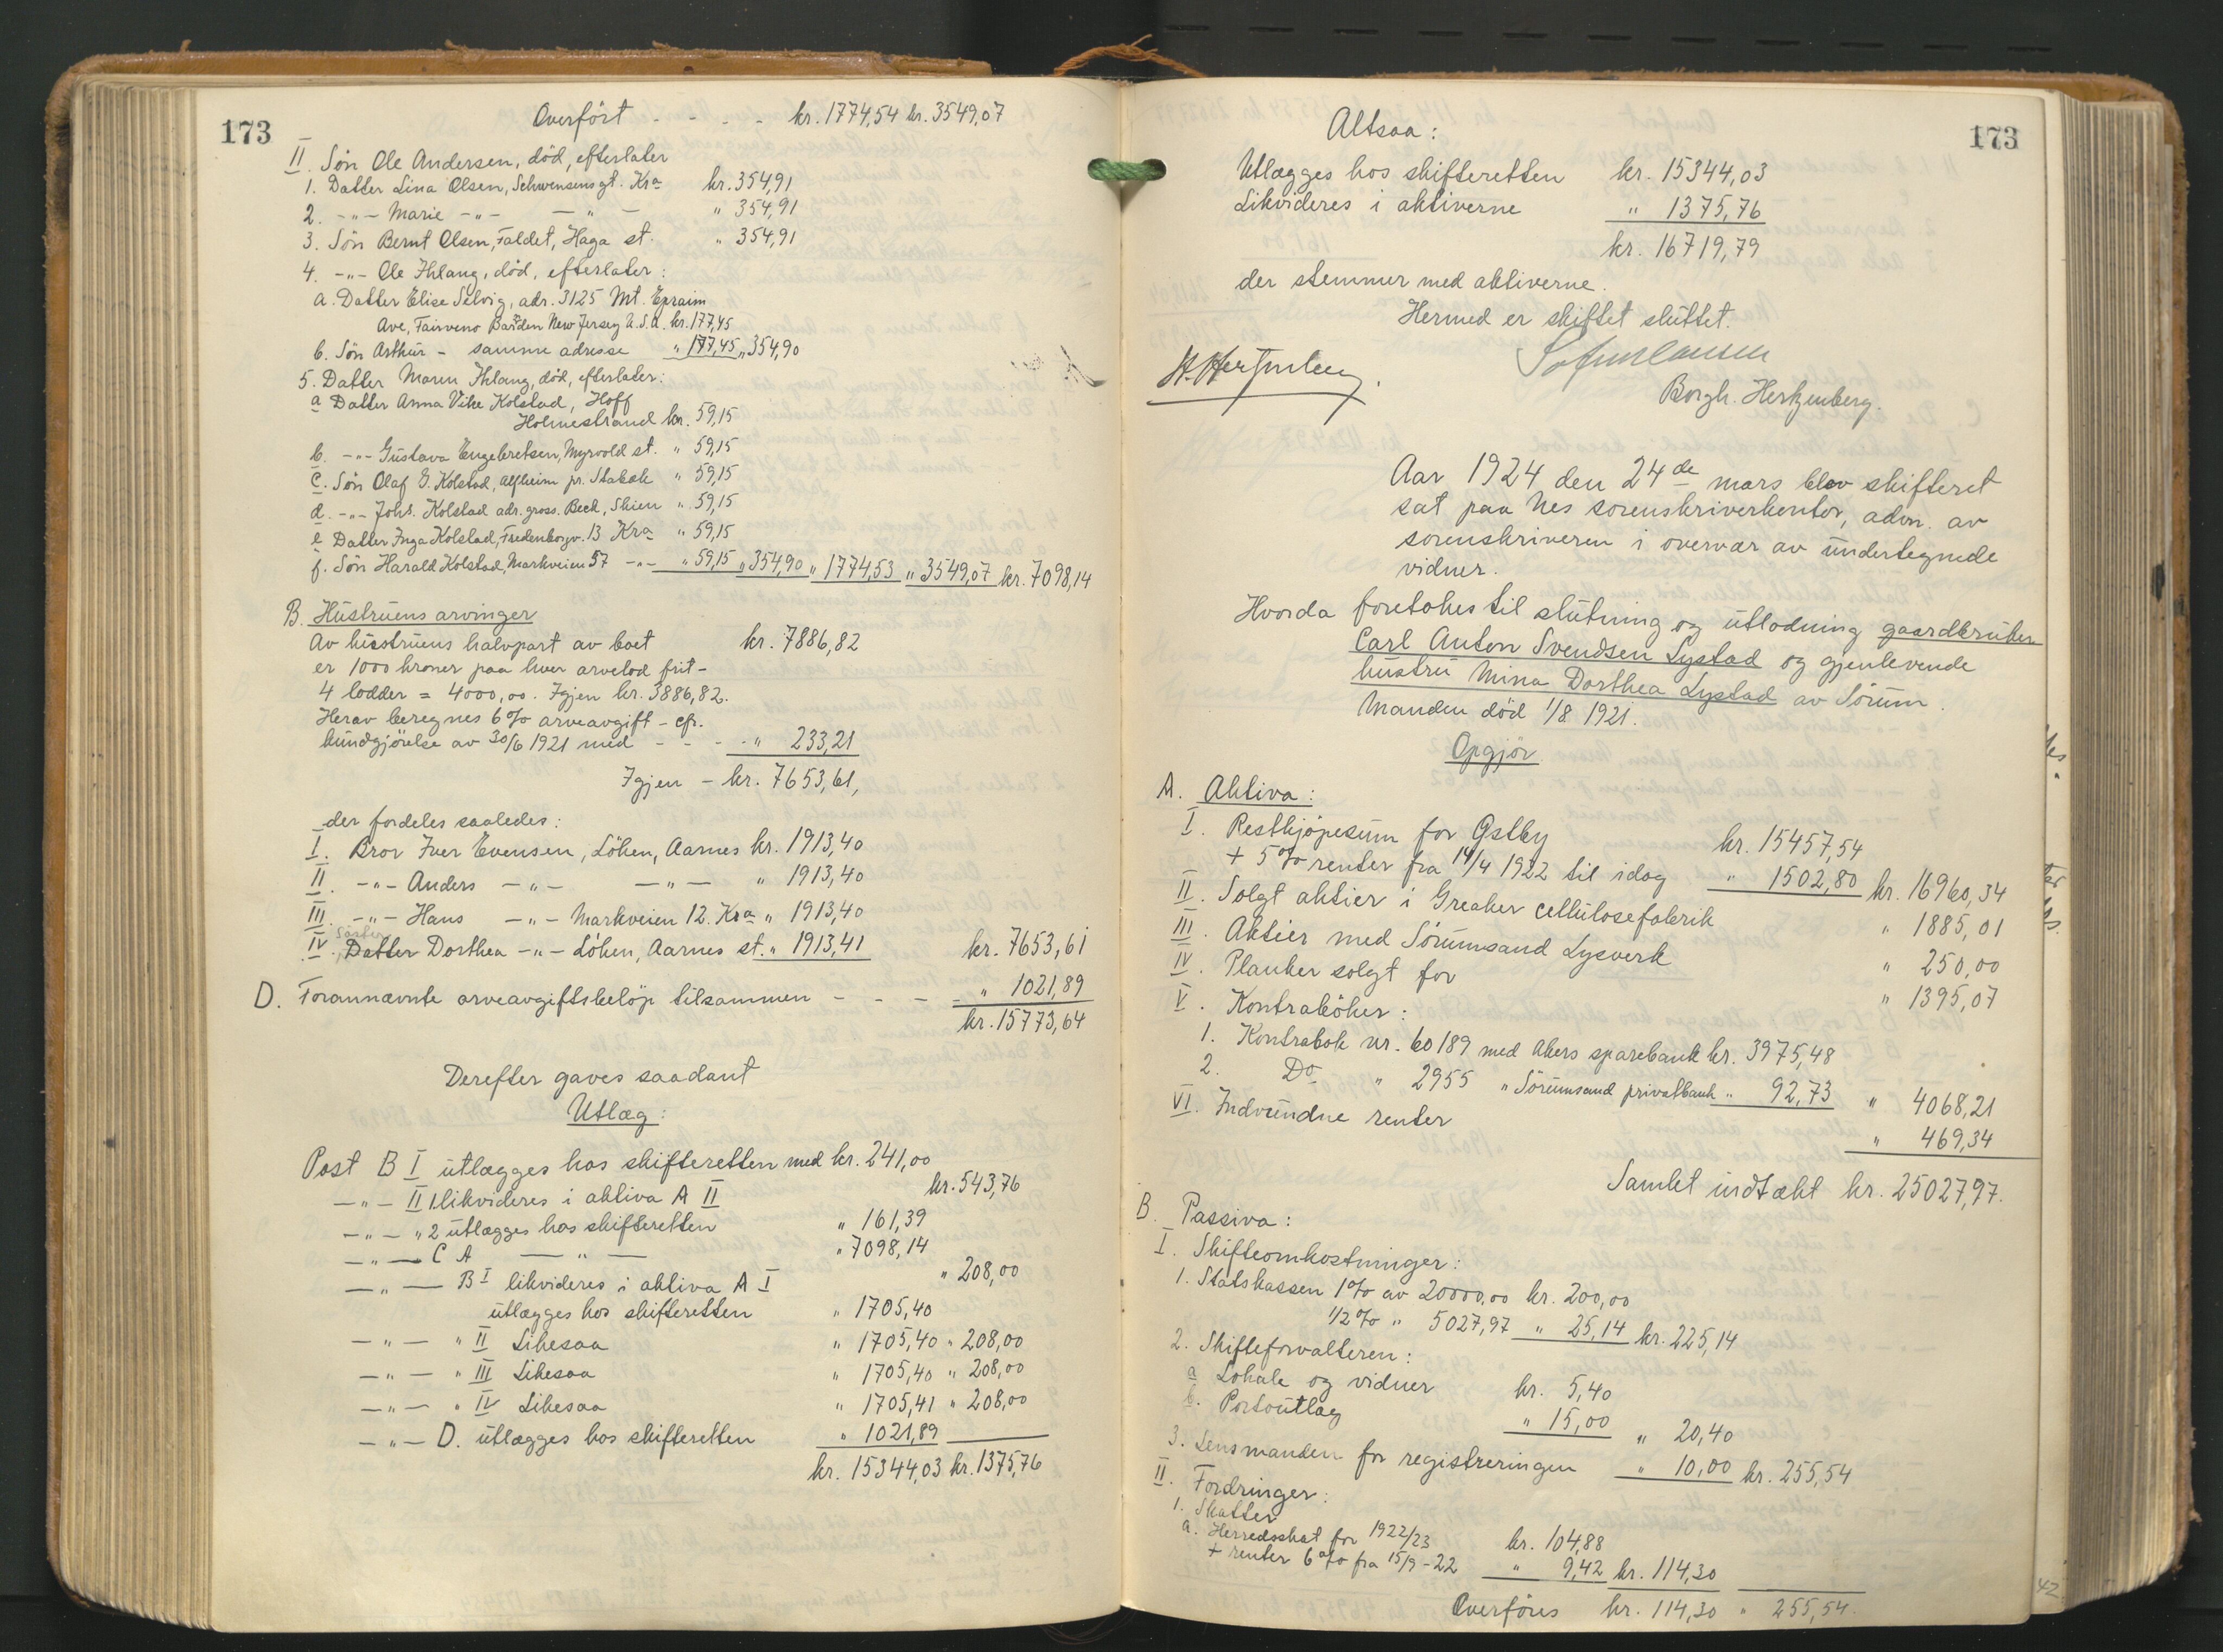 173
Overført - - - - kr. 1774,54 kr. 3549,07
II. Søn Ole Andersen, død, efterlater
1. Datter Lina Olsen, Schwensensgt. Kra kr. 354,91
2. -"- Marie -"- -"- " 354,91
3. Søn Bernt Olsen, Faldet, Haga st. " 354,91
4. -"- Ole Ihlang, død, efterlater:
a. Datter Elise Selvig, adr. 3125 Mt. Epraim
Ave, Fairveno Barden New Jersey U.S.A. kr. 177,45
b. Søn Arthur - samme adresse " 177,45 " 354,90
5. Datter Maren Ihlang, død, efterlater:
a Datter Anna Vike Kolstad, Hoff
Holmestrand kr. 59,15
b. -"- Gustava Engebretsen, Myrvold st. " 59,15
c. Søn Olaf G. Kolstad, Alfheim pr. Stabæk " 59,15
d. -"- Johs. Kolstad adr. gross. Beck, Skien " 59,15
e Datter Inga Kolstad, Fredenborgv. 13 Kra " 59,15
f. Søn Harald Kolstad, Markveien 57 -"- " 59,15 " 354,90 " 1774,53 " 3549,07 kr. 7098,14
B. Hustruens arvinger
Av hustruens halvpart av boet kr. 7886,82
er 1000 kroner paa hver arvelod frit-
4 lodder = 4000,00. Igjen kr. 3886,82.
Herav beregnes 6% arveavgift - cfr.
kundgjørelse av 30/6 1921 med - - - " 233,21
Igjen - kr. 7653,61,
der fordeles saaledes:
I. Bror Iver Evensen, Løken, Aarnes kr. 1913,40
II. -"- Anders -"- -"- " 1913,40
III. -"- Hans -"- Markveien 12. Kra " 1913,40
Søster
IV. Datter Dorthea -"- Løken, Aarnes st. " 1913,41 kr. 7653,61
D. Forannævnte arveavgiftsbeløp tilsammen - - - - " 1021,89
kr. 15773,64
Derefter gaves saadant
Utlæg:
Post B I utlægges hos skifteretten med kr. 241,00
-"- II 1 likvideres i aktiva A II kr. 543,76
-"- " 2 utlægges hos skifteretten " 161,39
-"- C A -"- " 7098,14
-"- B I likvideres i aktiva A I " 208,00
utlægges hos skifteretten " 1705,40
-"- " II Likesaa " 1705,40 " 208,00
-"- " III Likesaa " 1705,40 " 208,00
-"- " IV Likesaa " 1705,41 " 208,00
-"- D. utlægges hos skifteretten " 1021,89
kr. 15344,03 kr. 1375,76
173
Altsaa:
Utlægges hos skifteretten kr. 15344,03
Likvideres i aktiverne " 1375,76
kr. 16719,79
der stemmer med aktiverne.
Hermed er skiftet sluttet.
Borgh. Hertzenberg.
Aar 1924 den 24de mars blev skifteret
sat paa Nes sorenskriverkontor, adm. av
sorenskriveren i overvær av undertegnede
vidner.
Hvorda foretokes til slutning og utlodning gaardbruker
Carl Anton Svendsen Lystad og gjenlevende
hustru Mina Dorthea Lystad av Sørum.
Manden død 1/8 1921.
Opgjør
A. Aktiva:
I. Restkjøpesum for Østby kr. 15457,54
+ 5% renter fra 14/4 1922 til idag " 1502,80 kr. 16960,34
II. Solgt aktier i Greaker cellulosefabrik " 1885,01
III. Aktier med Sørumsand Lysverk " 250,00
IV. Planker solgt for " 1395,07
V. Kontrabøker:
1. Kontrabok nr. 60189 med Akers sparebank kr. 3975,48
2. Do " 2955 " Sørumsand privatbank " 92,73 " 4068,21
VI. Indvundne renter " 469,34
Samlet indtækt kr. 25027,97.
B. Passiva:
I. Skifteomkostninger:
1. Statskassen 1% av 20000,00 kr. 200,00
1/2% " 5027,97 " 25,14 kr. 225,14
2. Skifteforvalteren:
a Lokale og vidner kr. 5,40
b. Portoutlæg " 15,00 " 20,40
3. Lensmanden for registreringen " 10,00 kr. 255,54
II. Fordringer:
1. Skatter
a. Herredsskat for 1922/23 kr. 104,88
+ renter 6% fra 15/9-22 " 9,42 kr. 114,30
Overføres kr. 114,30 " 255,54.